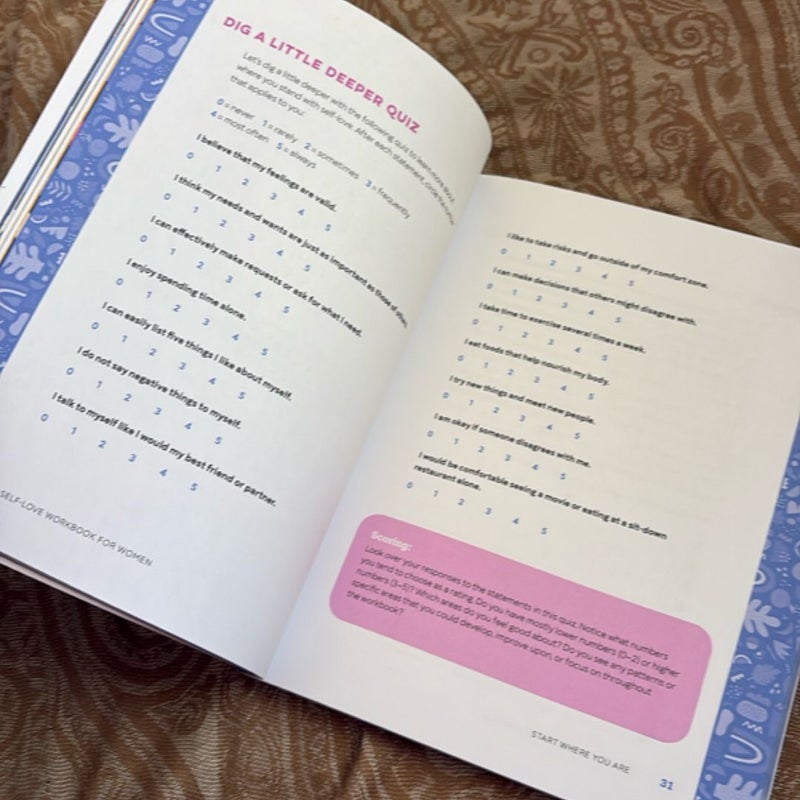 DIG A LITTLE DEEPER QUIZ
Let's dig a little deeper with the following quiz to learn more about
where you stand with self-love. After each statement, circle the
that applies to you:
0 = never 1 = rarely 2 = sometimes 3 = frequently
4 = most often 5 = always
I believe that my feelings are valid.
0 1 2 3 4 5
I think my needs and wants are just as important as those of others.
0 1 2 3 4 5
I can effectively make requests or ask for what I need.
0 1 2 3 4 5
I enjoy spending time alone.
0 1 2 3 4 5
I can easily list five things I like about myself.
0 1 2 3 4 5
I do not say negative things to myself.
0 1 2 3 4 5
I talk to myself like I would my best friend or partner.
0 1 2 3 4 5
SELF-LOVE WORKBOOK FOR WOMEN
I like to take risks and go outside of my comfort zone.
0 1 2 3 4 5
I can make decisions that others might disagree with.
0 1 2 3 4 5
I take time to exercise several times a week.
0 1 2 3 4 5
I eat foods that help nourish my body.
0 1 2 3 4 5
I try new things and meet new people.
0 1 2 3 4 5
I am okay if someone disagrees with me.
0 1 2 3 4 5
I would be comfortable seeing a movie or eating at a sit-down
restaurant alone.
0 1 2 3 4 5
Scoring:
Look over your responses to the statements in this quiz. Notice what numbers
you tend to choose as a rating. Do you have mostly lower numbers (0–2) or higher
numbers (3–5)? Which areas do you feel good about? Do you see any patterns or
specific areas that you could develop, improve upon, or focus on throughout
the workbook?
START WHERE YOU ARE
31